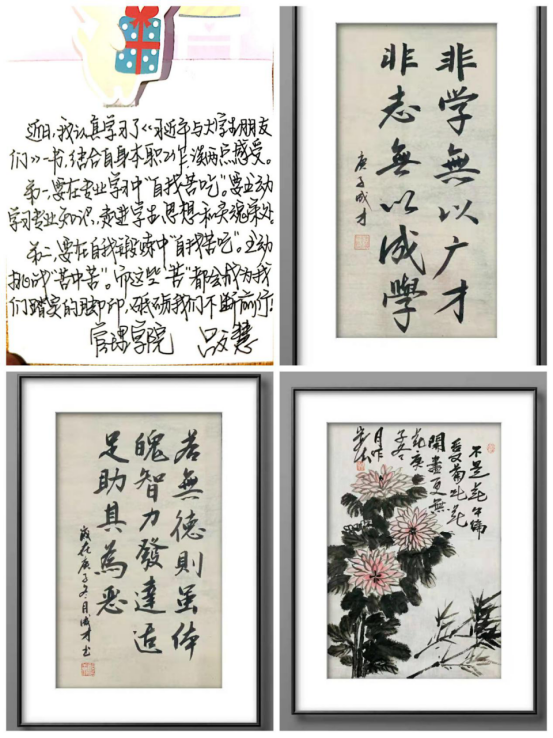 近日,我认真学习了《习近平与大学生朋友
们》一书,结合自身本职工作,谈两点感受。
第一,要在专业学习中“自找苦吃”。要主动
学习专业知识,走进学生思想和深处。
第二,要在自我锻炼中“自找苦吃”。主动
挑战“苦中苦”。而这些“苦”都会成为我
们踏实的脚印,砥砺我们不断前行!
管理学院 吕文慧
非学無以广才
非志無以成學
庚子成才
若無德則虽体
魄智力發達适
足助其為恶
歲在庚子冬月成才书
不是花中偏
爱菊此花
開盡更無
花庚
子冬
月